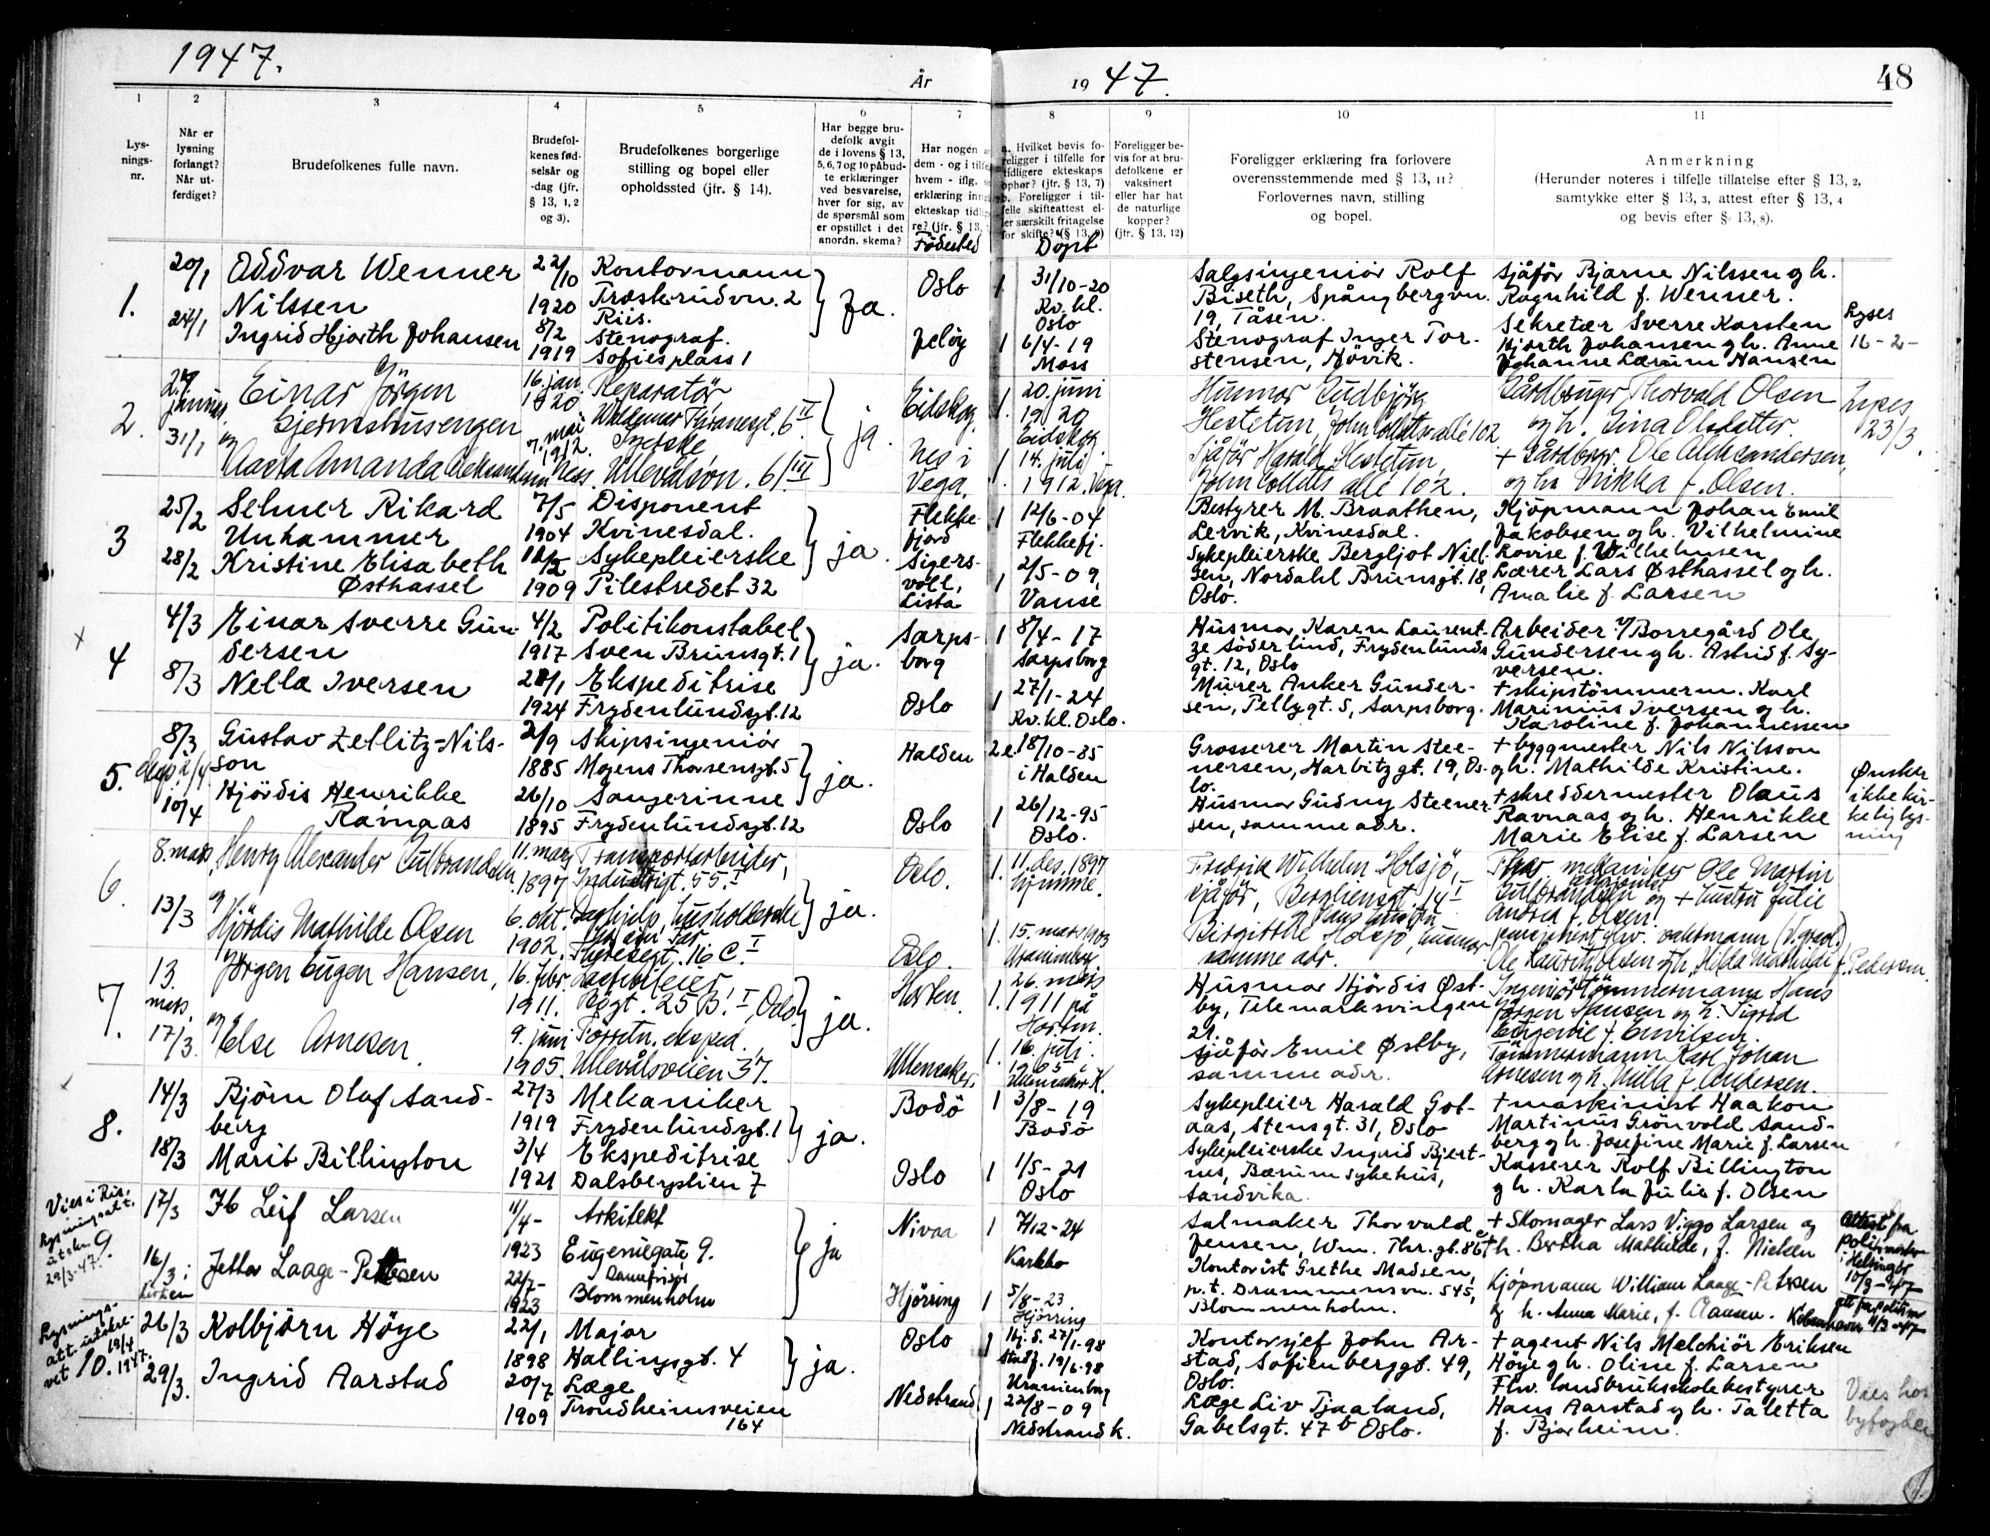 1947.
År
19 47.
48
1
2
3
4
5
6
7
8
9
10
11
Lysningsnr.
Når er lysning forlangt? Når utferdiget?
Brudefolkenes fulle navn.
Brudefolkenes fødselsår og -dag (jfr. § 13, 1, 2 og 3).
Brudefolkenes borgerlige stilling og bopel eller opholdssted (jfr. § 14).
Har begge brudefolk avgit de i lovens § 13, 5, 6, 7 og 10 påbudte erklæringer ved besvarelse, hver for sig, av de spørsmål som er opstillet i det anordn. skema?
Har nogen dem - og i tilf hvem - iflg. erklæring inn ekteskap tidl re? (jfr. § 13,
Fødested
a. Hvilket bevis foreligger i tilfelle for tidligere ekteskaps ophør? (jfr. § 13, 7) b. Foreligger i tilfelle skifteattest eller særskilt fritagelse for skifte? (§ 13, 9)
Døpt
Foreligger bevis for at brudefolkene er vaksinert eller har hat de naturlige kopper? (jfr. § 13, 12)
Foreligger erklæring fra forlovere overensstemmende med § 13, 11? Forlovernes navn, stilling og bopel.
Anmerkning (Herunder noteres i tilfelle tillatelse efter § 13, 2, samtykke efter § 13, 3, attest efter § 13, 4 og bevis efter § 13, 8).
1.
20/1 Oddvar Wenner 22/10 Kontormann Oslo 1 31/10-20 Salgsingeniør Rolf Sjåfør Bjarne Nilssen og h.
Nilssen 1920 Træskrudvn. 2 ja. Kv. kl. Biseth, Spångbergvn. Ragnhild f. Wenner. Lyses
24/1 8/2 Riis. Oslo 19, Tåsen. Sekretær Sverre Karsten 16-2-
Ingrid Hjorth Johansen 1919 Stenograf. Jeløy 1 6/4-19 Stenograf Inger Tor- Hjorth Johansen og h. Anne
Sofies plass 1 Moss stensen, Høvik. Johanne Lærum Hansen
2.
27. januar Einar Jörgen 16. jan Reparatör Eidskog. 1. 20. juni Husmor Gudbjörg Gårdbruger Thorvald Olsen Lyses
Gjermshusengen 1920 Waldemar Thranesgt. 6 II ja 1920 Hestetun, John Colletts allé 102 og h. Gina Olsdatter. 23/3.
31/1 og 7. mai Eidskog
1912. Nes i 1. 14. juli Sjåfør Harald Hestetun, + Gårdbrgr. Ole Aleksandersen,
Aasta Amanda Aleksandersen Ness. Ullevålsvn. 61 III Vega. 1912. Vega. John Colletts allé 102. og h. Mikka f. Olsen.
3
25/2 Selmer Rikard 7/5 Disponent Flekke- 1 12/6-04 Bestyrer M. Braathen, Kjøpmann Johan Emil
Unhammer 1904 Kvinesdal. fjord Flekkefj. Lervik, Kvinesdal. Jakobsen og h. Vilhelmine
28/2 Kristine Elisabeth Sykepleierske ja. Sigers- Sykepleierske Bergljot Niel- Lovise f. Wilhelmsen
Østhassel 1909 Pilestredet 32 voll, 1 2/5-09, sen, Nordahl Brunsgt. 18, Lærer Lars Østhassel og h.
Lista Vanse Oslo. Amalie f. Larsen
4
4/3 Einar Sverre Gun- 4/2 Politikonstabel Sarps- 1 8/4-17 Husmor Karen Laurent- Arbeider v/Borregård Ole
dersen 1917 Sven Brunsgt. 1 ja. borg Sarpsborg ze Söderlind, Frydenlunds Gundersen og h. Astrid f. Sy-
gt. 12, Oslo versen.
8/3 Nella Iversen Ekspeditrise 27/1-24 Murer Anker Gunder- + skipstømmerm. Karl
1924 Frydenlundsgt. 12 Oslo 1 Kv. kl. Oslo. sen, Pellygt. 5, Sarpsborg. Marinius Iversen og h.
Karoline f. Johannessen
5.
8/3 Gustav Zetlitz-Nils- 2/9 Skipsingeniør Halden 2 e 18/10-85 Grosserer Martin Stee- + byggmester Nils Nilsson
son 1885 Mogens Thorsensgt. 5 ja. i Halden nersen, Harbitzgt. 19, Os- og h. Mathilde Kristine. Ønsker
lo. ikke kir-
10/4 Hjørdis Henrikke 26/10 Sangerinne 26/12-95 Husmor Gudny Steener- + skreddermester Olaus kelig lys-
Ravnaas 1895 Frydenlundsgt. 12 Oslo 1 Oslo. sen, samme adr. Ravnaas og h. Henrikke ning
Marie Elise f. Larsen
6.
8. mars Henry Alexander Gulbrandsen 11. mars Transportarbeider, Oslo. 1. 11. des. 1897 Fredrik Wilhelm Holsjö, mekaniker Ole Martin
1897 Industrigt. 55 I ja. hjemme. sjåför, Bergliensgt. 14 I Gulbrandsen og + hustru Julie
og hans hustru Andrea f. Olsen.
13/3 Hjördis Mathilde Olsen 6. okt. Daghjelp, husholderske 1. 15. mars 1903 Birgitthe Holsjö, husmor vaktmann
1902. Theresesgt. 16 C. I Oslo. Uranienborg samme adr. Ole Lauritz Olsen og h. Hilda Mathilde f. Pedersen.
7.
13. mars. Jörgen Eugen Hansen, 16. febr. Horten. 1. 26. mars Husmor Hjördis Øst- Ingeniør Tömmermann Hans
1911. 25 B. I, Oslo. ja. 1911 på by, Telemarksvingen Jörgen Hansen og h. Sigrid
og Horten. 21. Eugenie f. Emilsen.
17/3. Else Arnesen. 9. juni Forretn. eksped. 1. 16. juli. Sjåfør Emil Østby, Tömmermann Karl Johan
1905. Ullevålsveien 37. Ullensaker. 1905 i Ullensaker K. samme adr. Arnesen og h. Milla f. Andersen.
8.
14/3 Björn Olaf Sand- 27/3 Mekaniker Bodö 1 3/8-19 Sykepleier Harald Got- + maskinist Haakon
berg 1919 Frydenlundsgt. 1 ja. Bodö aas, Stensgt. 31, Oslo Martinus Grönvold Sand-
Sykepleierske Ingrid Bjert- berg og h. Josefine Marie f. Larsen
18/3 Marit Billington 3/4 Ekspeditrise 1/5-21 nes, Bærum sykehus, Kasserer Rolf Billington
1921 Dalsberglien 7 Oslo 1 Oslo Sandvika. og h. Karla Julie f. Olsen
Vies i Ris.
Lysningsatt.
utskr. 9
29/3-47.
17/3 Ib Leif Larsen 11/4- Arkitekt Nivaa 1 7/12-24 Salmaker Thorvald + Skomager Lars Viggo Larsen og Attest fra
1923 Eugeniegate 9. ja Karlebo Jensen, Wm. Thr. gt. 86 h. Bertha Mathilde, f. Nielsen politimester
16/3 i kirken Jetta Laage-Petersen 22/7- Blommenholm Kontorist Grethe Madsen, i Helsingör
1923 Hjørring 1 5/8-23. p.t. Drammensvn. 545, Kjøpmann William Laage-Petersen 10/3-47
Hjørring Blommenholm. og h. Anna Marie, f. Clausen. København 11/3-47
Lysnings-
att. utskre-
vet 19/4 1947.
10.
26/3 Kolbjörn Höye 22/1 Major Oslo 1 Hj. d. 27/1-98 Kontorsjef John Ar- + agent Nils Melchiör Eriksen
1898 Hallingsgt. 4 ja. Stadf. 19/6-98 stad, Sofienberggt. 49, Höye og h. Oline f. Larsen
29/3. Ingrid Aarstad 20/7 Læge Uranienborg Oslo. Flw. landbruksskolebestyrer Vies hos
1909 Trondheimsveien Nedstrand 1 22/8-09 Læge Liv Tjaaland, Hans Aarstad og h. Taletta byfogden
164 Nedstrand k. Gabelsgt. 47 b Oslo. f. Bjarheim.